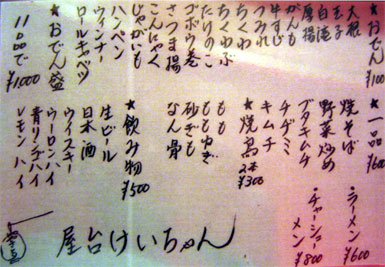 ★おでん ¥100
大根
玉子
白滝
厚揚
がんも
牛すじ
つみれ
ちくわ
ちくわぶ
たけのこ
ゴボウ巻
さつま揚
こんにゃく
じゃがいも
ハンペン
ウィンナー
ロールキャベツ
★おでん盛
¥1,000
★一品 ¥600
焼そば
野菜炒め
ブタキムチ
チヂミ
キムチ
★焼鳥 2本 ¥300
もも
ももねぎ
砂ぎも
なん骨
★飲み物 ¥500
生ビール
日本酒
ウイスキー
ウーロンハイ
青リンゴハイ
レモンハイ
・ラーメン ¥600
・チャーシューメン ¥800
屋台けいちゃん